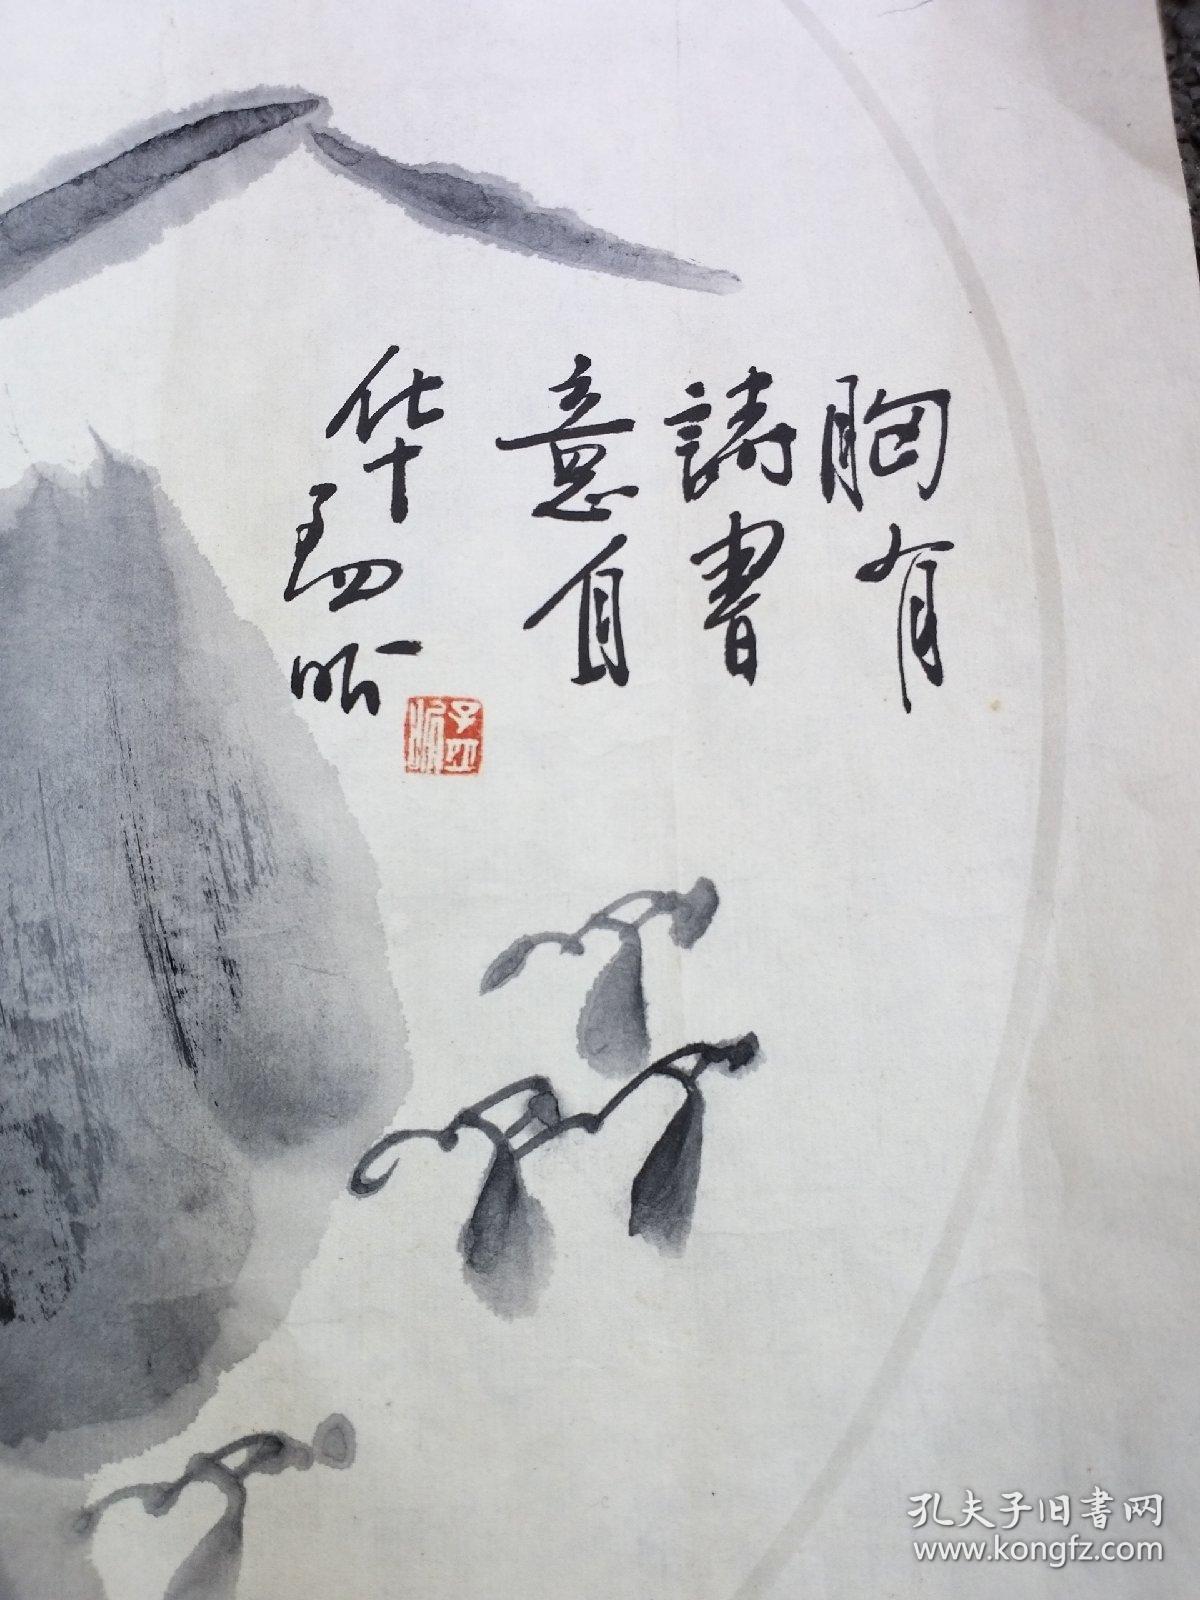 胸有
詩書
意自
华
孔夫子旧书网
www.kongfz.com